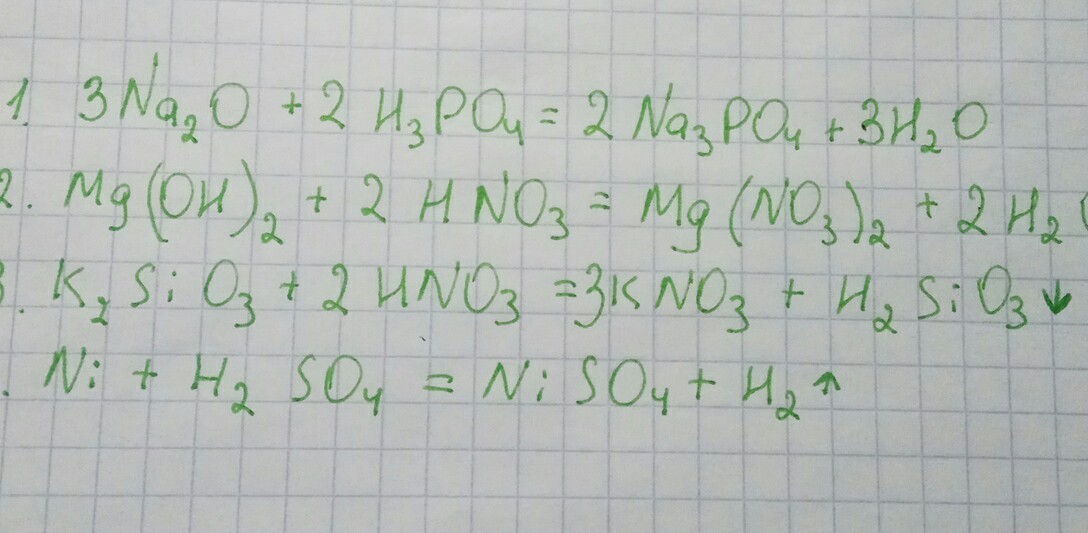 1. 3Na₂O + 2 H₃PO₄ = 2 Na₃PO₄ + 3H₂O
2. Mg(OH)₂ + 2 HNO₃ = Mg(NO₃)₂ + 2 H₂
. K₂SiO₃ + 2 HNO₃ = 3KNO₃ + H₂SiO₃↓
. Ni + H₂SO₄ = NiSO₄ + H₂↑